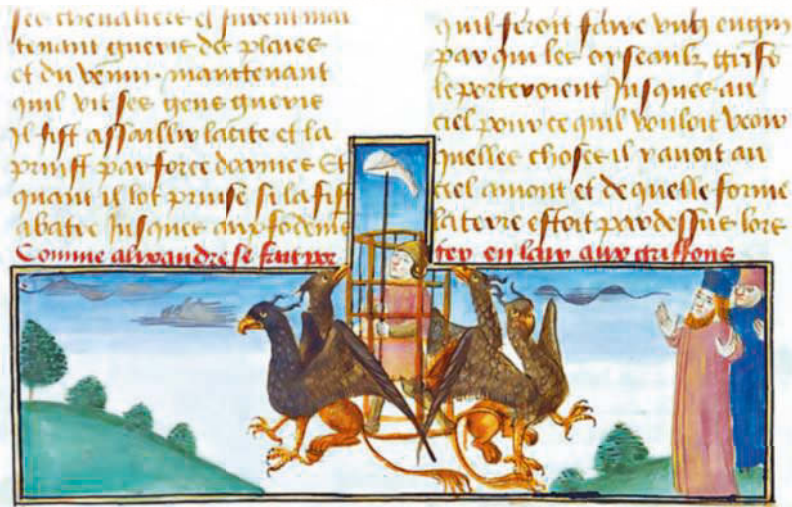 ses chevaliers et furent mai
tenant gueris des plaies
et du venin. maintenant
quil vit ses gens gueris
Il fist assaillir lacite et la
prinst par force darmes Et
quant il lot prinse si la fist
abatre Jusques aux fondeme
Comme alixandre se fait por
quil feroit faire ung engin
par qui les oyseaulx griffo
le porteroient Jusques au
ciel pour ce quil vouloit veoir
quelles choses il y avoit au
ciel amont et de quelle forme
la terre estoit par dessus lors
ter en lair aux griffons